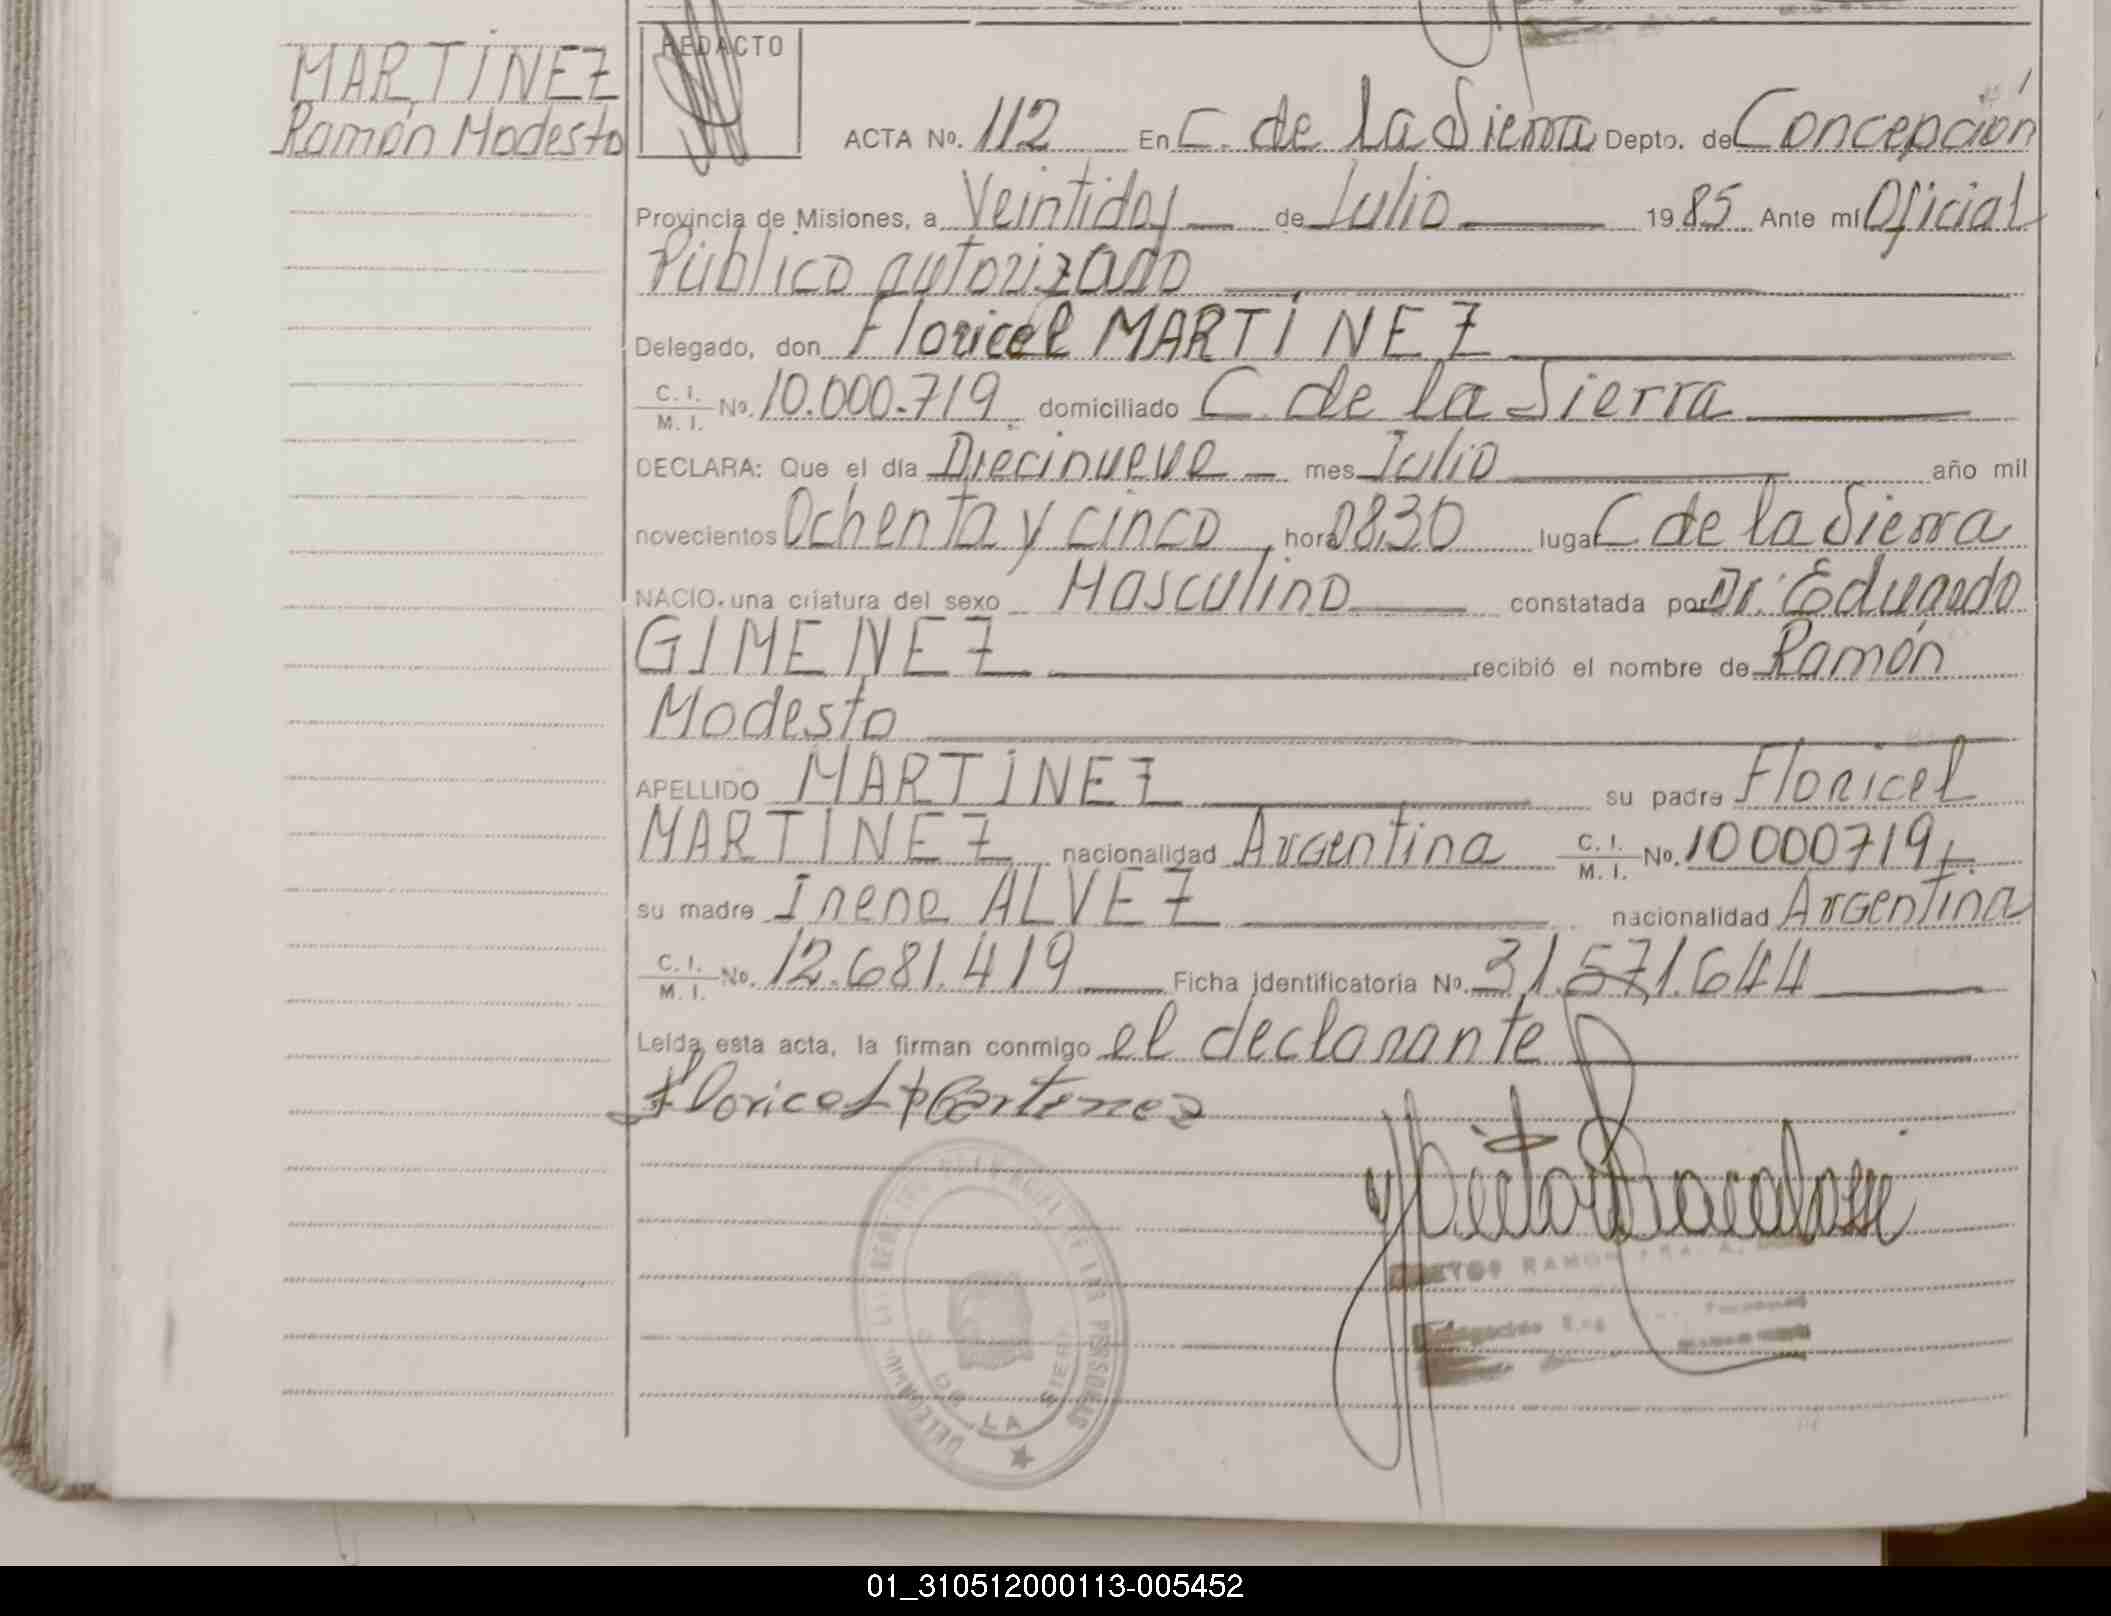 MARTÍNEZ
Ramón Modesto
REDACTO
ACTA No. 112 En C. de La Sierra Depto. de Concepción
Provincia de Misiones, a Veintidos de Julio 1985 Ante mí Oficial
Público autorizado
Delegado, don Floricel MARTÍNEZ
C. I. M. I. No. 10.000.719 domiciliado C. de la Sierra
DECLARA: Que el día Diecinueve mes Julio año mil
novecientos Ochenta y cinco hora 08,30 lugar C de la Sierra
NACIO una criatura del sexo Masculino constatada por Dr. Eduardo
GIMENEZ recibió el nombre de Ramón
Modesto
APELLIDO MARTÍNEZ su padre Floricel
MARTINEZ nacionalidad Argentina C. I. M. I. No. 10000719
su madre Irene ALVEZ nacionalidad Argentina
C. I. M. I. No. 12.681.419 Ficha identificatoria No. 31.571.644
Leída esta acta, la firman conmigo el declarante
Floricel Martinez
DE LAS PERSONAS
DE LA SIERRA
RAMON
01_310512000113-005452